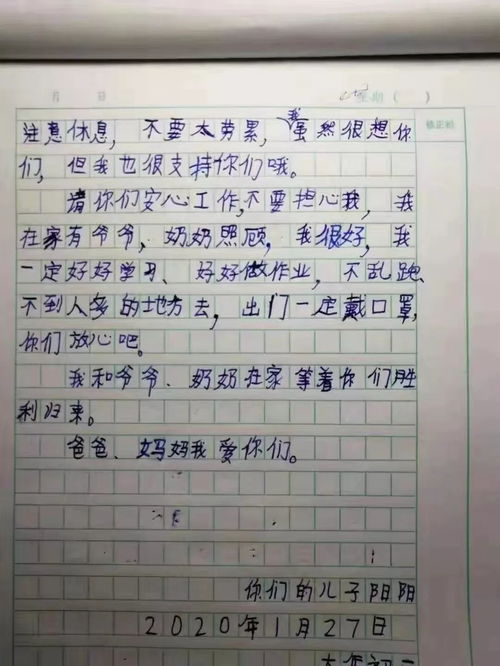 月 日 星期（ ）
订正栏
注意休息，不要太劳累，我虽然很想你
们，但我也很支持你们哦。
请你们安心工作，不要担心我，我
在家有爷爷、奶奶照顾，我很好，我
一定好好学习、好好做作业，不乱跑、
不到人多的地方去，出门一定戴口罩，
你们放心吧。
我和爷爷、奶奶在家等着你们胜
利归来。
爸爸、妈妈我爱你们。
你们的儿子阳阳
2020年1月27日
大年初三